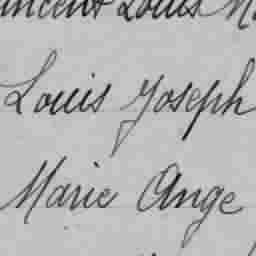 incent Louis M
Louis Joseph
Marie Ange